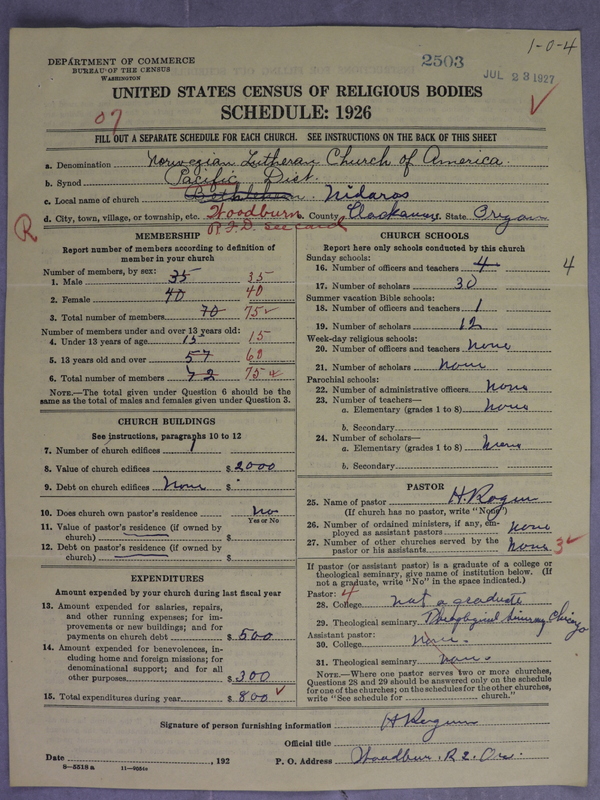 1-0-4
DEPARTMENT OF COMMERCE
BUREAU OF THE CENSUS
WASHINGTON
2503
JUL 23 1927
UNITED STATES CENSUS OF RELIGIOUS BODIES
07
SCHEDULE: 1926
FILL OUT A SEPARATE SCHEDULE FOR EACH CHURCH. SEE INSTRUCTIONS ON THE BACK OF THIS SHEET
a. Denomination Norwegian Lutheran Church of America
b. Synod Pacific Dist.
c. Local name of church Bethlehem. Nidaros
d. City, town, village, or township, etc. Woodburn County Clackamas State Oregon
R
R.F.D. see card
MEMBERSHIP
Report number of members according to definition of member in your church
Number of members, by sex:
1. Male 35 35
2. Female 40 40
3. Total number of members 70 75
Number of members under and over 13 years old:
4. Under 13 years of age 15 15
5. 13 years old and over 57 60
6. Total number of members 72 75
NOTE.—The total given under Question 6 should be the same as the total of males and females given under Question 3.
CHURCH BUILDINGS
See instructions, paragraphs 10 to 12
7. Number of church edifices 1
8. Value of church edifices $ 2000
9. Debt on church edifices None $
10. Does church own pastor's residence? No
Yes or No
11. Value of pastor's residence (if owned by church) $
12. Debt on pastor's residence (if owned by church) $
EXPENDITURES
Amount expended by your church during last fiscal year
13. Amount expended for salaries, repairs, and other running expenses; for improvements or new buildings; and for payments on church debt $ 500
14. Amount expended for benevolences, including home and foreign missions; for denominational support; and for all other purposes $ 300
15. Total expenditures during year $ 800
CHURCH SCHOOLS
Report here only schools conducted by this church
Sunday schools:
16. Number of officers and teachers 4 4
17. Number of scholars 30
Summer vacation Bible schools:
18. Number of officers and teachers 1
19. Number of scholars 12
Week-day religious schools:
20. Number of officers and teachers None
21. Number of scholars None
Parochial schools:
22. Number of administrative officers None
23. Number of teachers—
a. Elementary (grades 1 to 8) None
b. Secondary
24. Number of scholars—
a. Elementary (grades 1 to 8) None
b. Secondary
PASTOR
25. Name of pastor H.
(If church has no pastor, write "None")
26. Number of ordained ministers, if any, employed as assistant pastors None
27. Number of other churches served by the pastor or his assistants None 3
If pastor (or assistant pastor) is a graduate of a college or theological seminary, give name of institution below. (If not a graduate, write "No" in the space indicated.)
Pastor: 4
28. College not a graduate
29. Theological seminary Theological Seminary Chicago
Assistant pastor:
30. College None.
31. Theological seminary None.
NOTE.—Where one pastor serves two or more churches, Questions 28 and 29 should be answered only on the schedule for one of the churches; on the schedules for the other churches, write "See schedule for church."
Signature of person furnishing information H
Official title
Date , 192
P. O. Address Woodburn. R 2. Ore.
8—5518 a